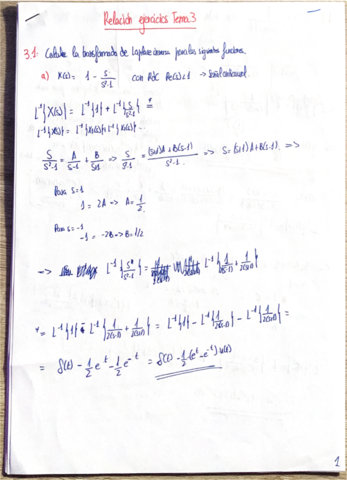 Relación ejercicios Tema 3
3.1. Calcular la transformada de Laplace inversa para las siguientes funciones.
a) X(s) = 1 - s/(s²-1) con RoC Re(s)<1 →
L⁻¹{X(s)} = L⁻¹{1} + L⁻¹{s/(s²-1)} *
s/(s²-1) = A/(s-1) + B/(s+1) => s/(s²-1) = ((s+1)A+B(s-1))/(s²-1) => s = (s+1)A+B(s-1). =>
Para s=1
1 = 2A => A = 1/2.
Para s=-1
-1 = -2B => B=1/2
L⁻¹{s/(s²-1)} = L⁻¹{1/(2(s-1)) + 1/(2(s+1))}
* = L⁻¹{1} - L⁻¹{1/(2(s-1)) + 1/(2(s+1))} = L⁻¹{1} - L⁻¹{1/(2(s-1))} - L⁻¹{1/(2(s+1))} =
= δ(t) - 1/2 e^t - 1/2 e^-t = δ(t) - 1/2 (e^t - e^-t) u(t)
1